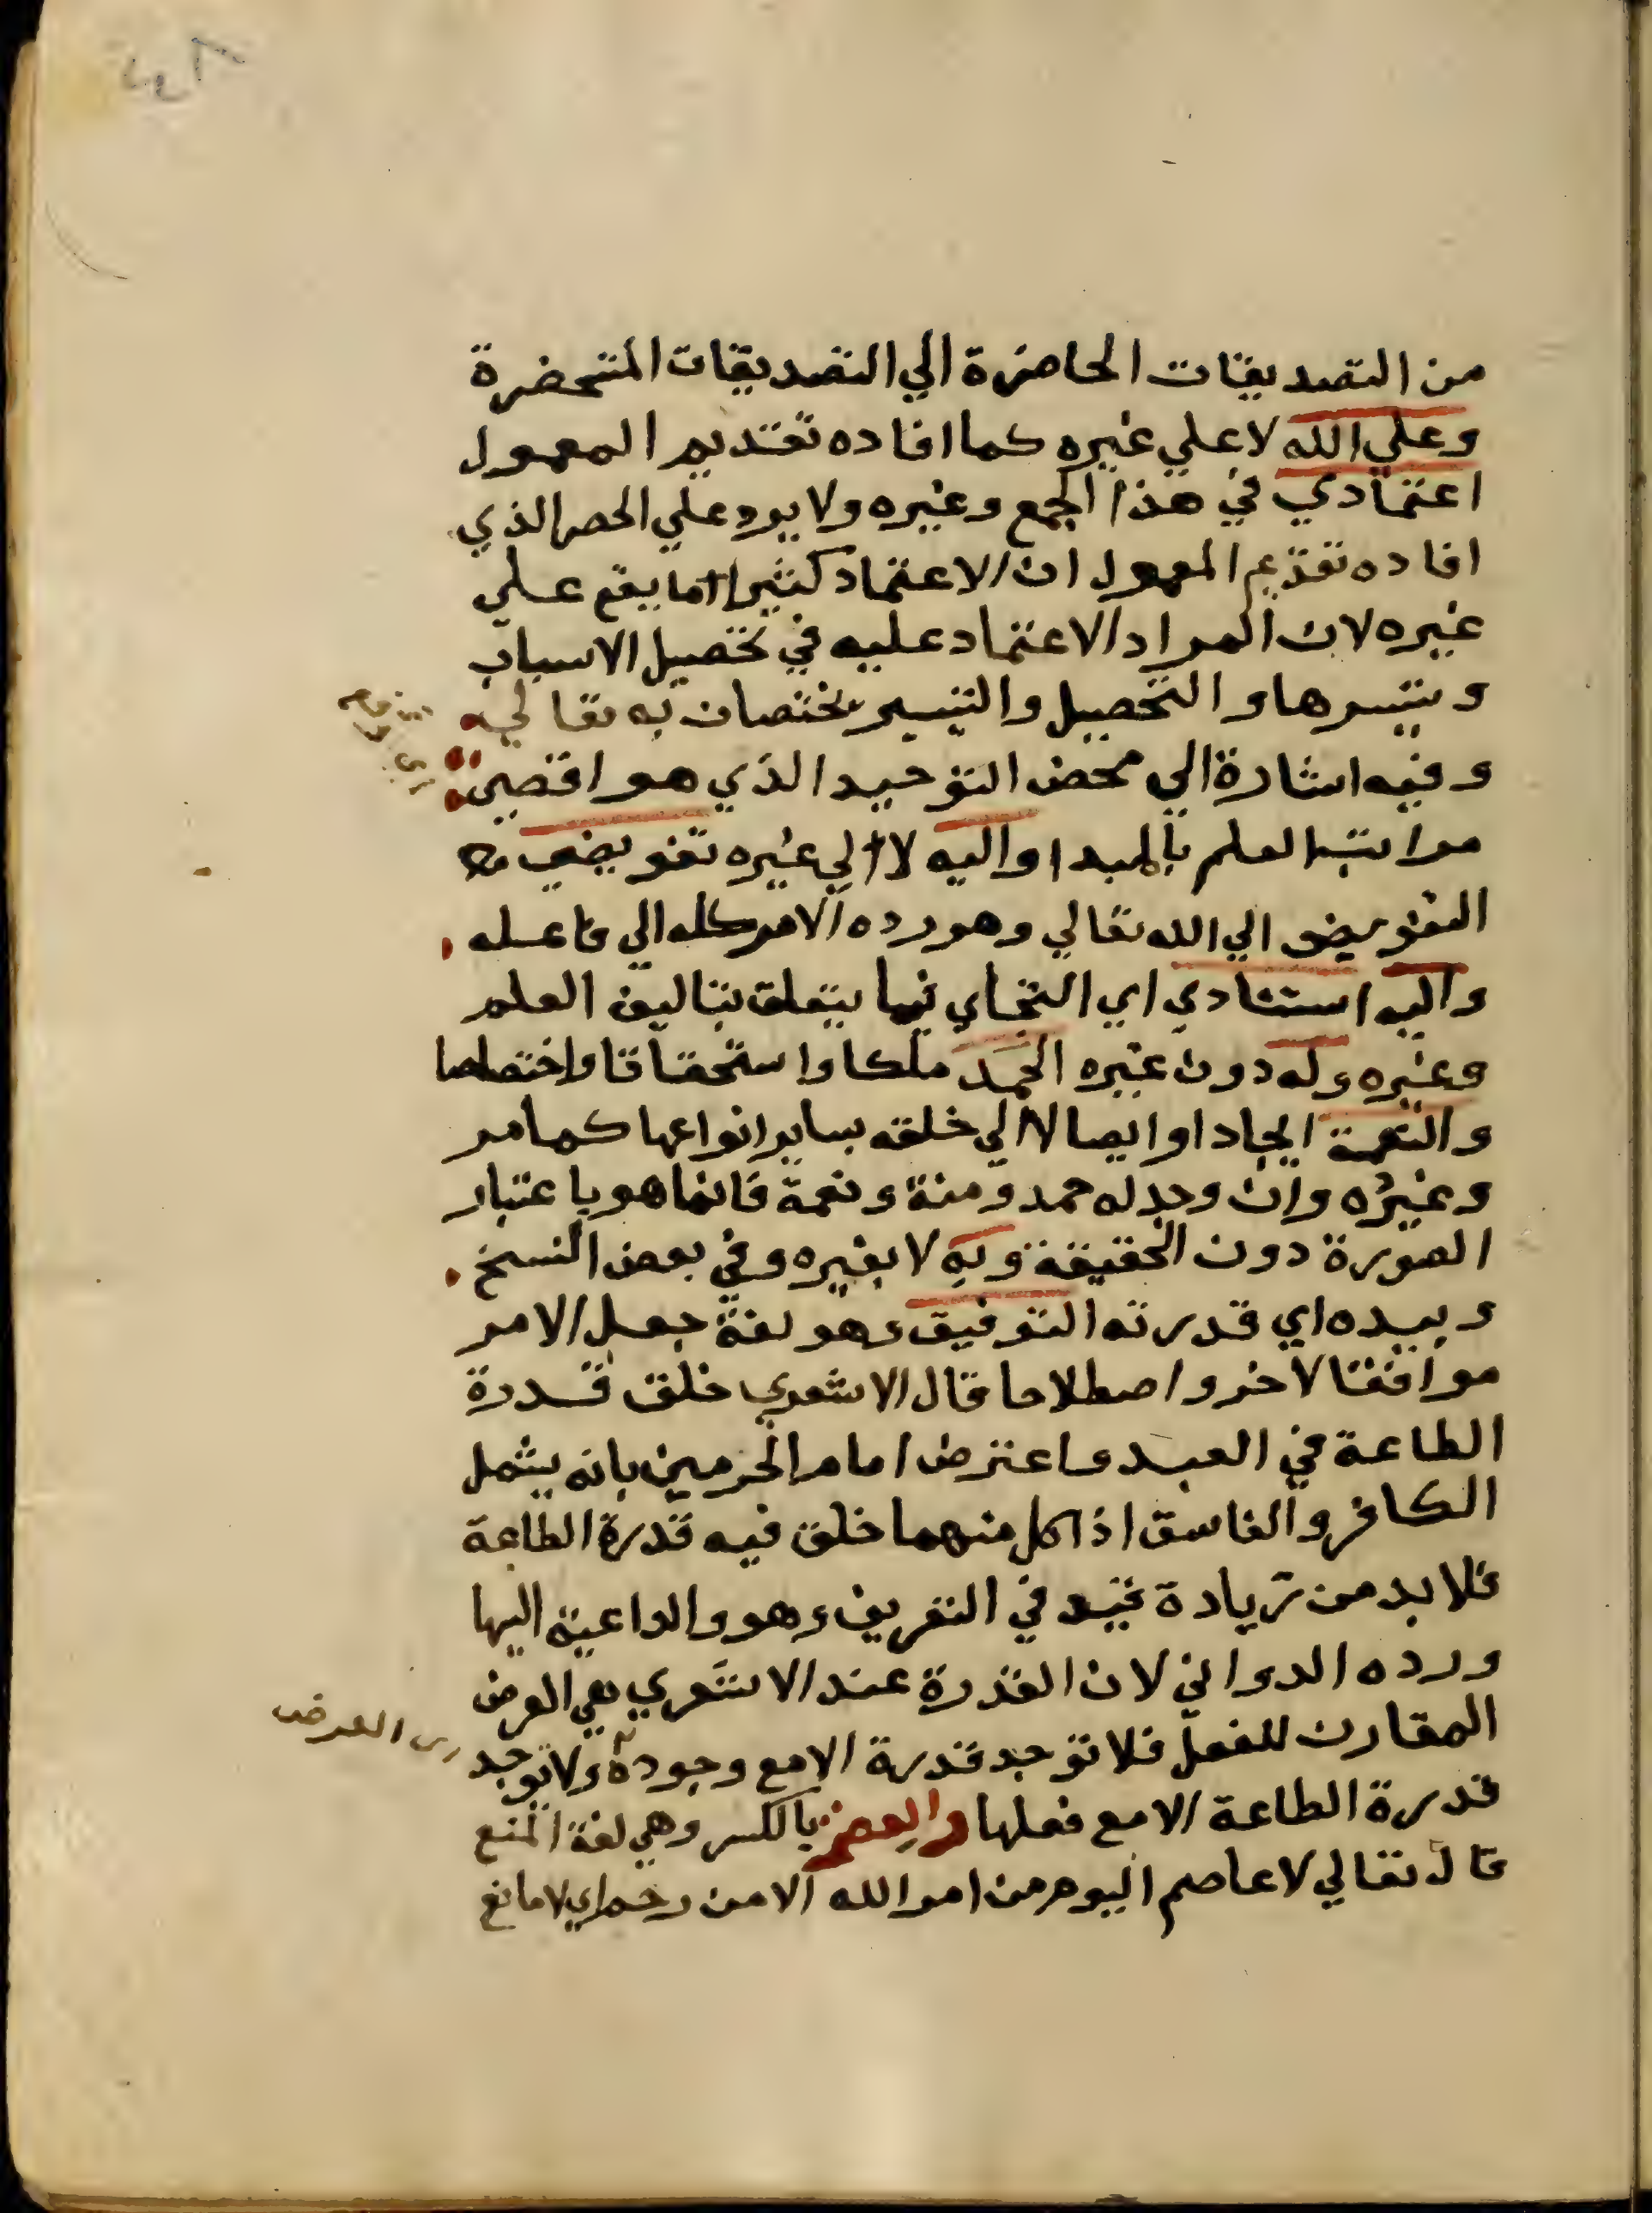 من التصديقات الحاضرة الي التصديقات المتحضرة
وعلي الله لا علي غيره كما افاده تقديم المعمول
اعتمادي في هذا الجمع وغيره ولا يرد علي الحصر الذي
افاده تقديم المعمول ان الاعتماد كثيرا ما يقع علي
غيره لان المراد الاعتماد عليه في تحصيل الاسباب
وتيسرها والتحصيل والتيسير يختصان به تعالي
وفيه اشارة الي محض التوحيد الذي هو اقصي
مراتب العلم بالمبدا واليه لا الي غيره تفويضي
التفويض الي الله تعالي وهو رده الامر كله الي فاعله
واليه استنادي اي التجاي فيما يتعلق بتاليف العلم
وغيره وله دون غيره الحمد ملكا واستحقاقا واختصاصا
والنعمة ايجادا وايصالا الي خلقه بساير انواعها كما مر
وغيره وان وجد له حمد ومنة ونعمة فانما هو باعتبار
الصورة دون الحقيقة وبه لا بغيره وفي بعض النسخ
وبيده اي قدرته التوفيق وهو لغة جعل الامر
موافقا لاخر واصطلاحا قال الاشعري خلق قدرة
الطاعة في العبد واعترض امام الحرمين بانه يشمل
الكافر والفاسق اذ كل منهما خلق فيه قدرة الطاعة
فلا بد من زيادة قيد في التعريف وهو والداعية اليها
ورده الدواني لان القدرة عند الاشعري هي العرض
المقارن للفعل فلا توجد قدرة الا مع وجوده ولا توجد
قدرة الطاعة الا مع فعلها والعصمة بالكسر وهي لغة المنع
قال تعالي لا عاصم اليوم من امر الله الا من رحم اي لا مانع
العرض